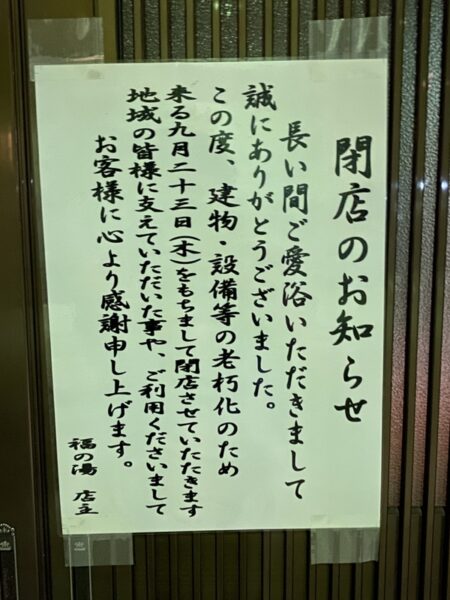 閉店のお知らせ
長い間ご愛浴いただきまして
誠にありがとうございました。
この度、建物・設備等の老朽化のため
来る九月二十三日(木)をもちまして閉店させていただきます
地域の皆様に支えていただいた事や、ご利用くださいまして
お客様に心より感謝申し上げます。
福の湯 店主